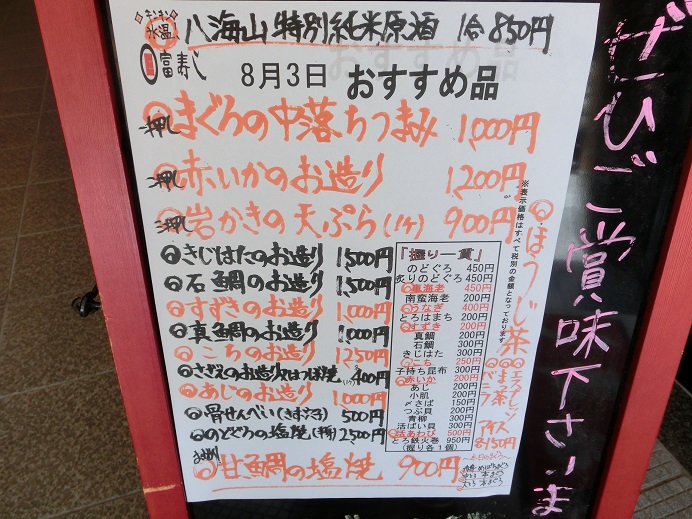 八海山 特別純米原酒 1合 850円
富寿し
8月3日 おすすめ品
一押し まぐろの中落ちつまみ 1,000円
二押し 赤いかのお造り 1,200円
三押し 岩かきの天ぷら(1ヶ) 900円
きじはたのお造り 1,500円
石鯛のお造り 1,500円
すずきのお造り 1,000円
真鯛のお造り 1,000円
こちのお造り 1250円
さざえのお造り又はつぼ焼 400円
あじのお造り 1,000円
骨せんべい 500円
のどぐろの塩焼 2,500円
甘鯛の塩焼 900円
「握り一貫」
のどぐろ 450円
炙りのどぐろ 450円
車海老 450円
南蛮海老 200円
うなぎ 400円
とろはまち 200円
すずき 200円
真鯛 200円
石鯛 300円
きじはた 300円
こち 250円
子持ち昆布 300円
赤いか 200円
あじ 200円
小肌 200円
〆さば 150円
つぶ貝 200円
青柳 200円
活ばい貝 300円
活あわび 500円
とろ鉄火巻 950円
(握り各1個)
※表示価格はすべて税別の金額となっております
ほうじ茶
エスプレッソ
バニラ
アイス
各150円
ぜひご賞味下さいま